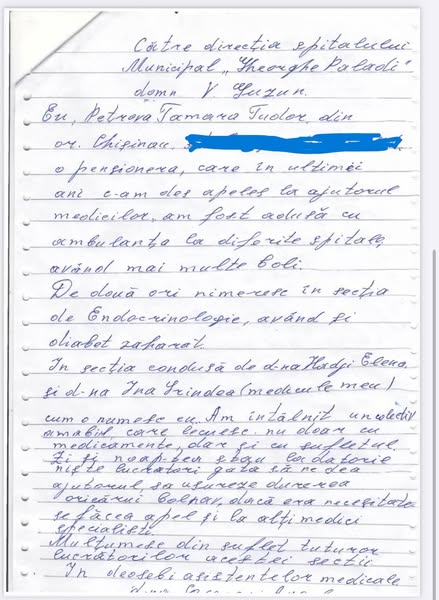 Către direcția spitalului
Municipal „Gheorghe Paladi"
domn V. Guzun.
Eu, Petrova Tamara Tudor, din
or. Chișinău,
o pensioneră, care în ultimii
ani c-am des apeles la ajutorul
medicilor, am fost adusă cu
ambulanța la diferite spitale,
având mai multe boli.
De două ori nimeresc în secția
de Endocrinologie, având și
diabet zaharat.
In secția condusă de d-na Hadji Elena,
și d-na Ina Grindea (medicule meu)
cum o numesc eu. Am întâlnit un colectiv
amabil care lecuesc nu doar cu
medicamente, dar și cu sufletul.
Zi și noaptea stau la datorie
niște lucrători gata să ne dea
ajutorul, sa ușureze durerea
oricărui bolnav, dacă era necesitate
se făcea apel și la alți medici
specialiști.
Mulțumesc din suflet tuturor
lucrătorilor acestei secții
In deosebi asistentelor medicale